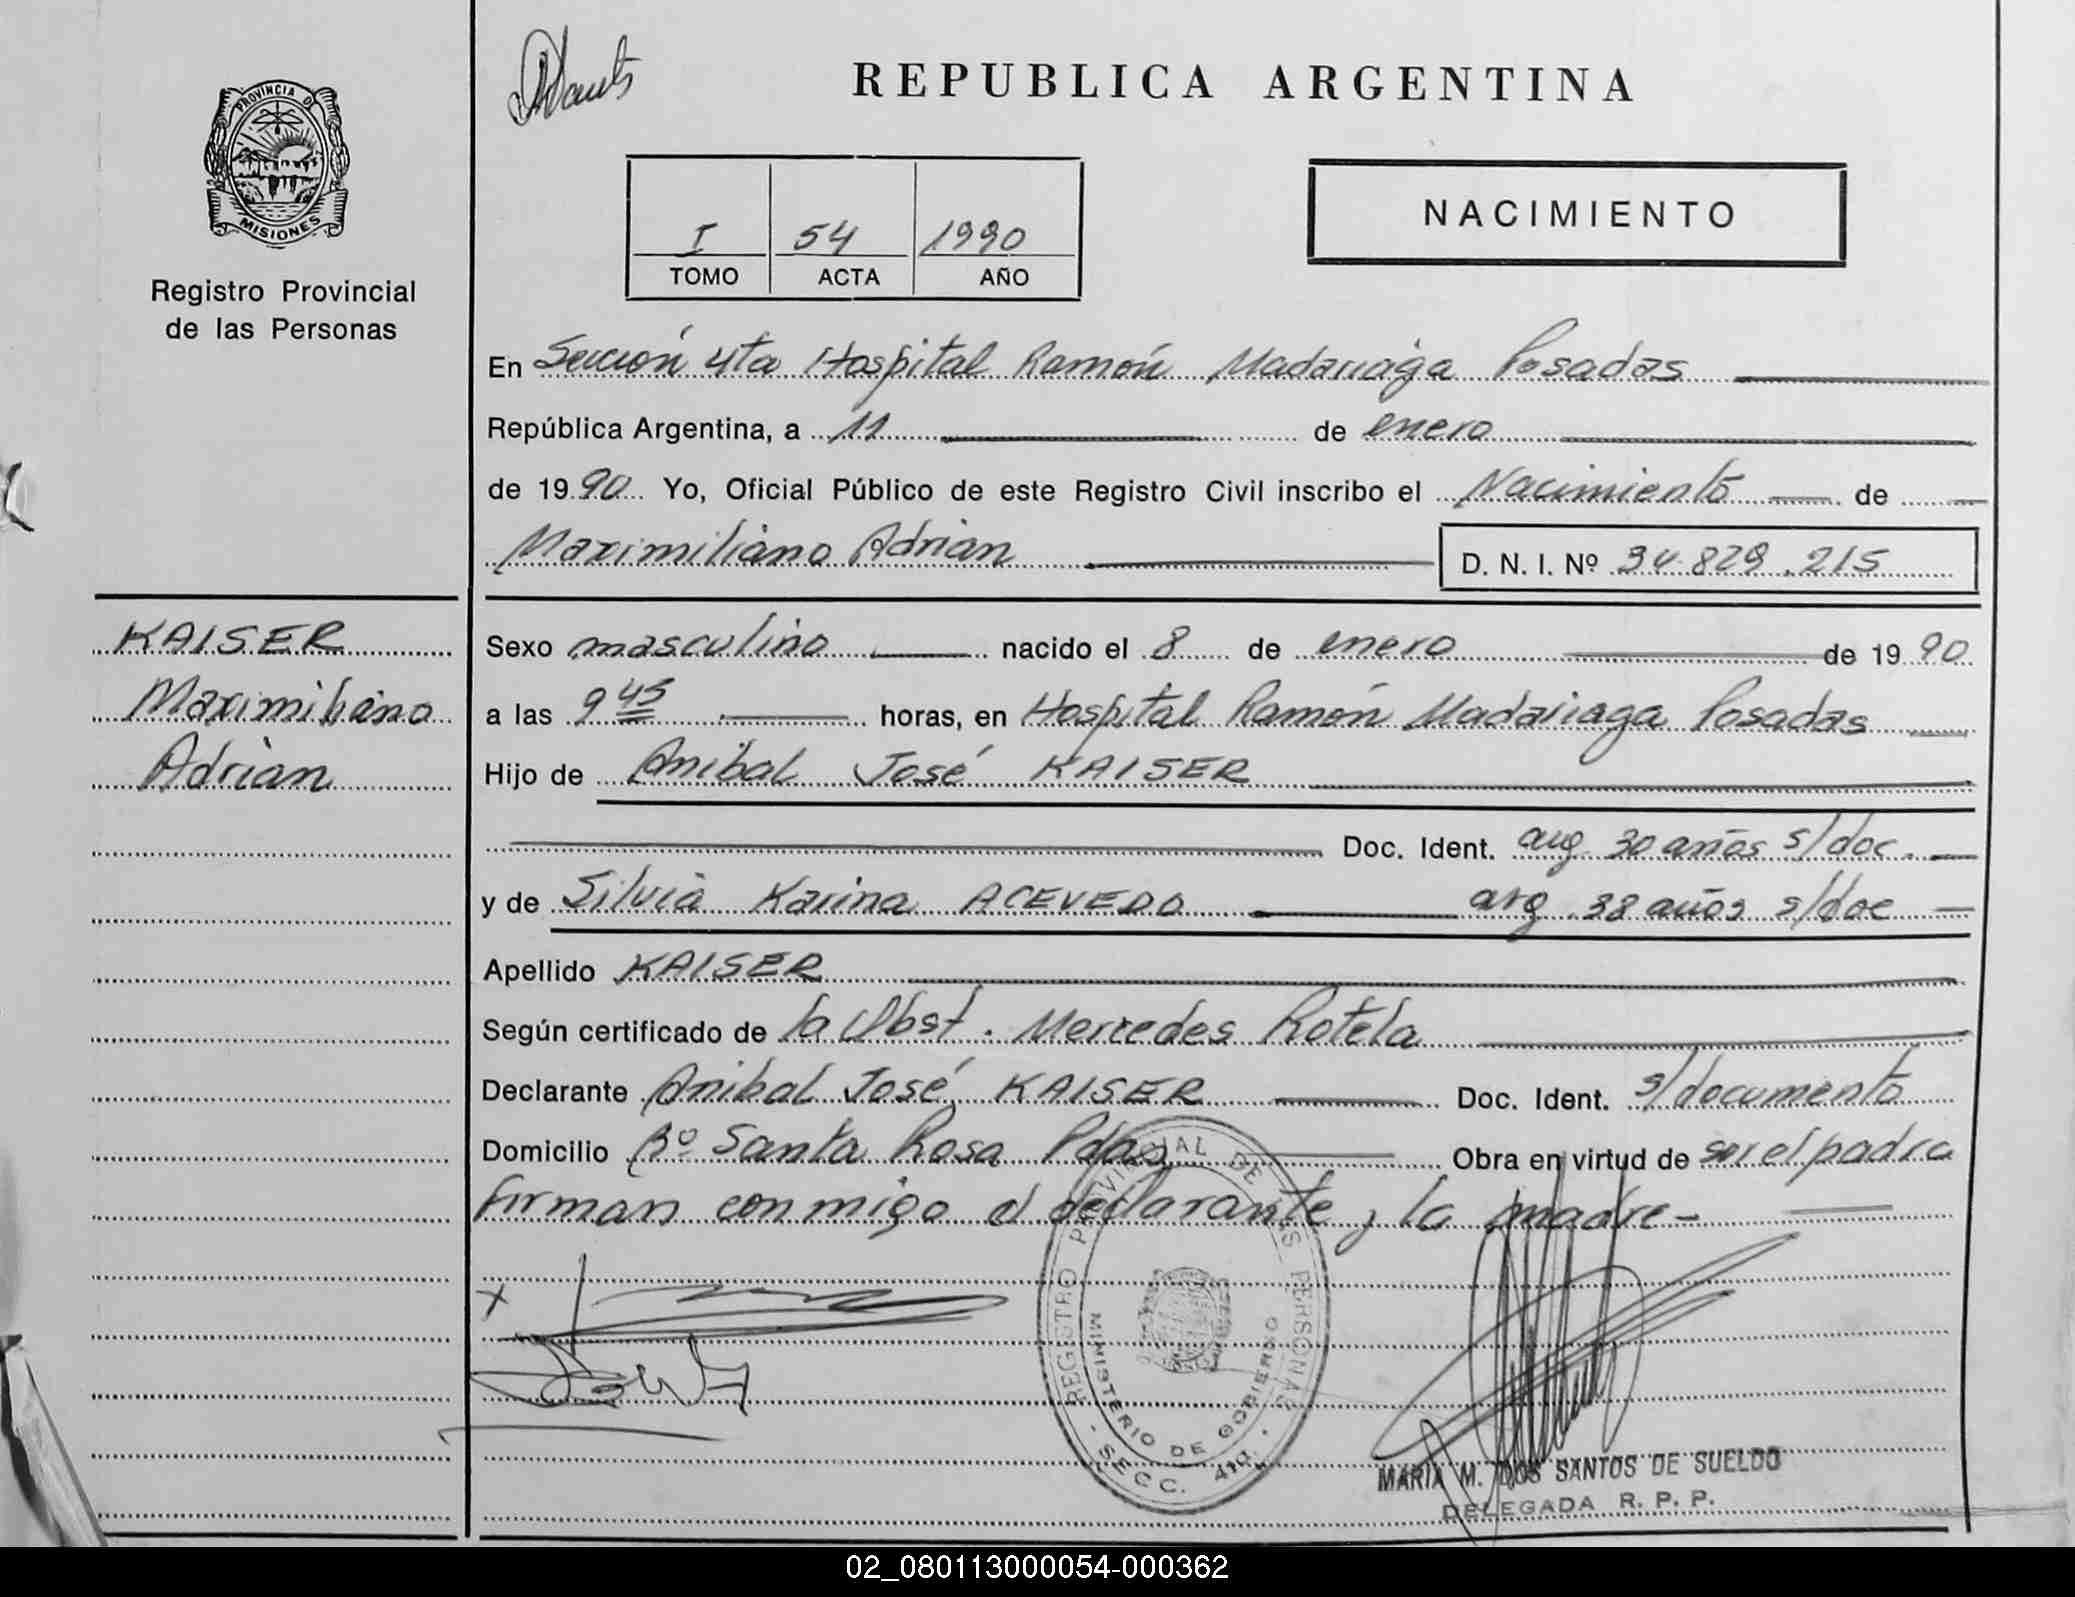 REPUBLICA ARGENTINA
PROVINCIA D
MISIONES
Registro Provincial
de las Personas
I 54 1990
TOMO ACTA AÑO
NACIMIENTO
En Sección 4ta Hospital Ramón Madariaga Posadas
República Argentina, a 11 de enero
de 1990 Yo, Oficial Público de este Registro Civil inscribo el Nacimiento de
Maximiliano Adrian D. N. I. Nº 34.829.215
KAISER
Maximiliano
Adrian
Sexo masculino nacido el 8 de enero de 1990
a las 9 45 horas, en Hospital Ramón Madariaga Posadas
Hijo de Anibal José KAISER
Doc. Ident. arg. 30 años s/doc.
y de Silvia Karina ACEVEDO arg. 38 años s/doc
Apellido KAISER
Según certificado de la Obst. Mercedes Rotela
Declarante Anibal José KAISER Doc. Ident. s/documento
Domicilio Bº Santa Rosa Pdas Obra en virtud de ser el padre
Firman conmigo el declarante y la madre-
x
REGISTRO PROVINCIAL DE LAS PERSONAS
MINISTERIO DE GOBIERNO
- SECC. 4ta. -
MARIA M. DOS SANTOS DE SUELDO
DELEGADA R. P. P.
02_080113000054-000362